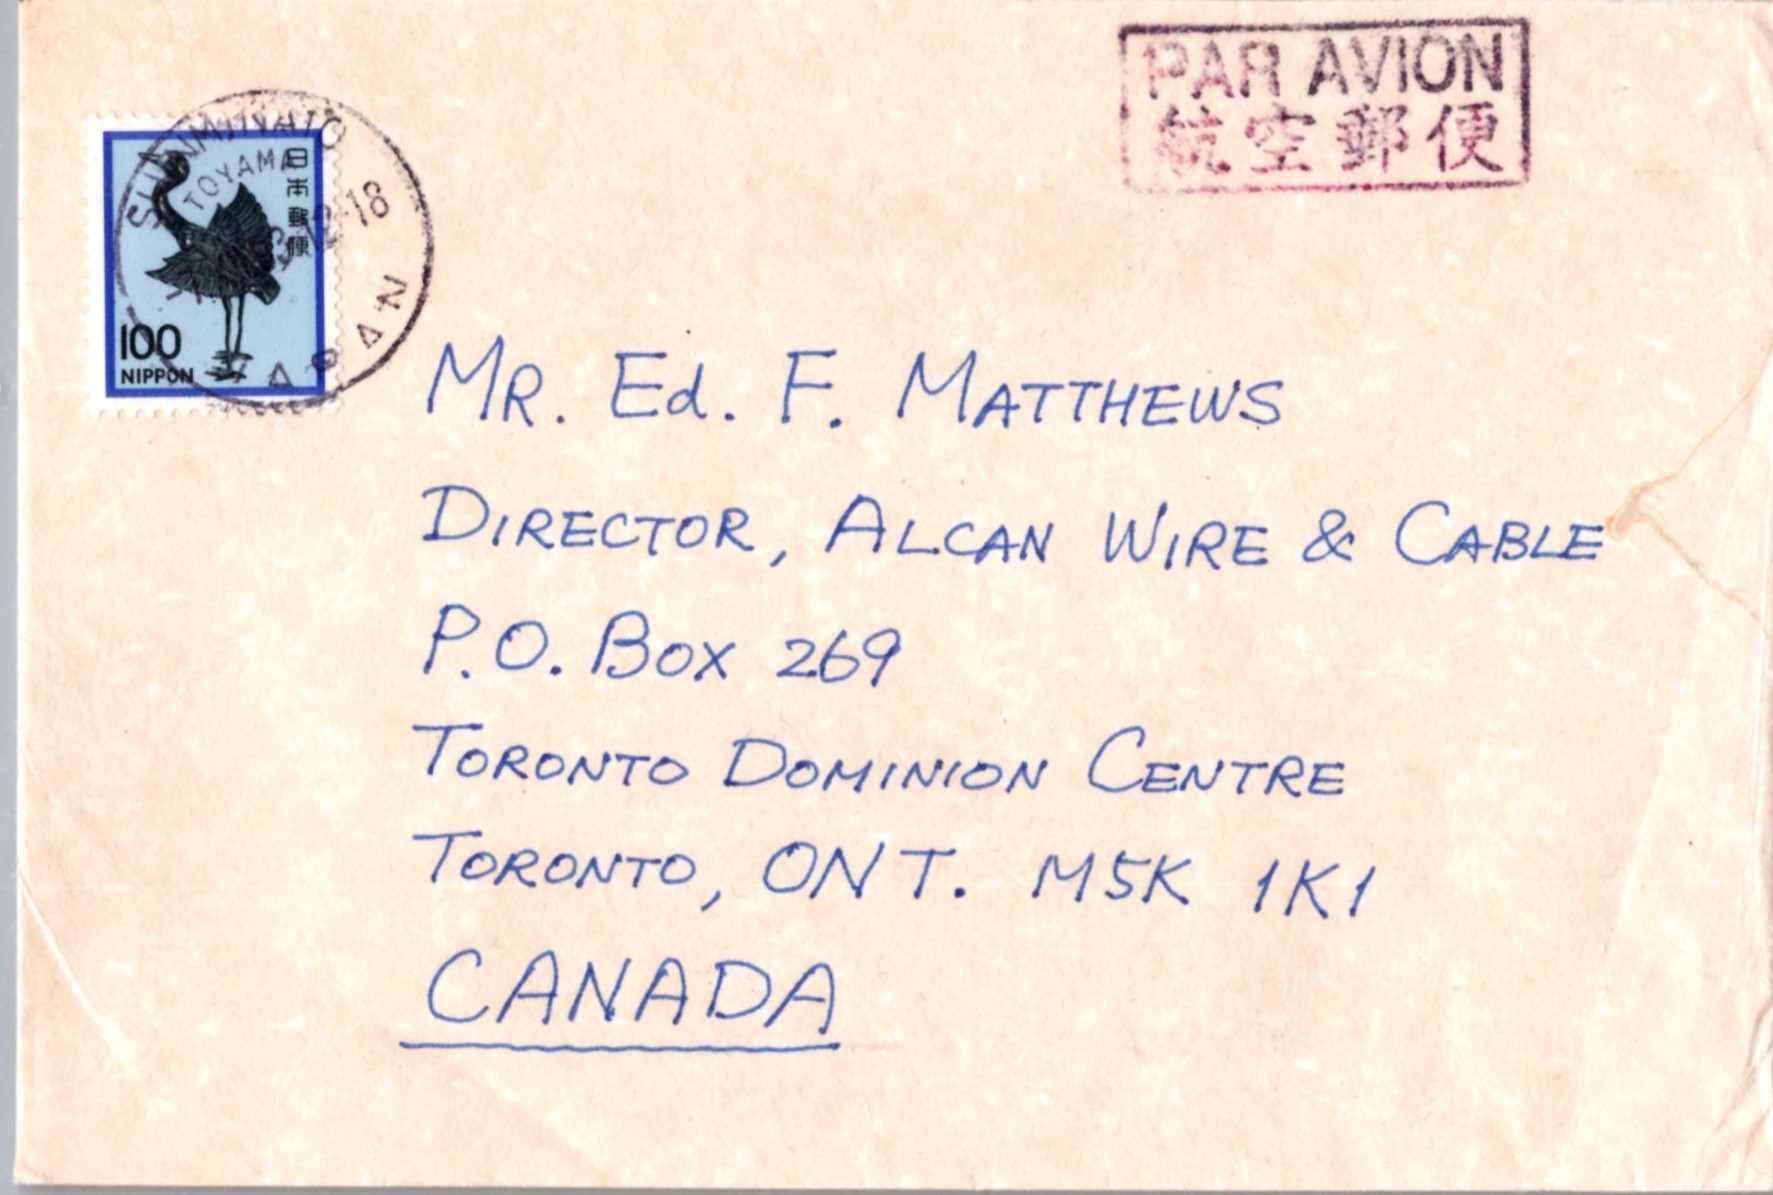 PAR AVION
航空郵便
TOYAMA
日本郵便
18
JAPAN
100
NIPPON
MR. Ed. F. MATTHEWS
DIRECTOR, ALCAN WIRE & CABLE
P.O. BOX 269
TORONTO DOMINION CENTRE
TORONTO, ONT. M5K 1K1
CANADA